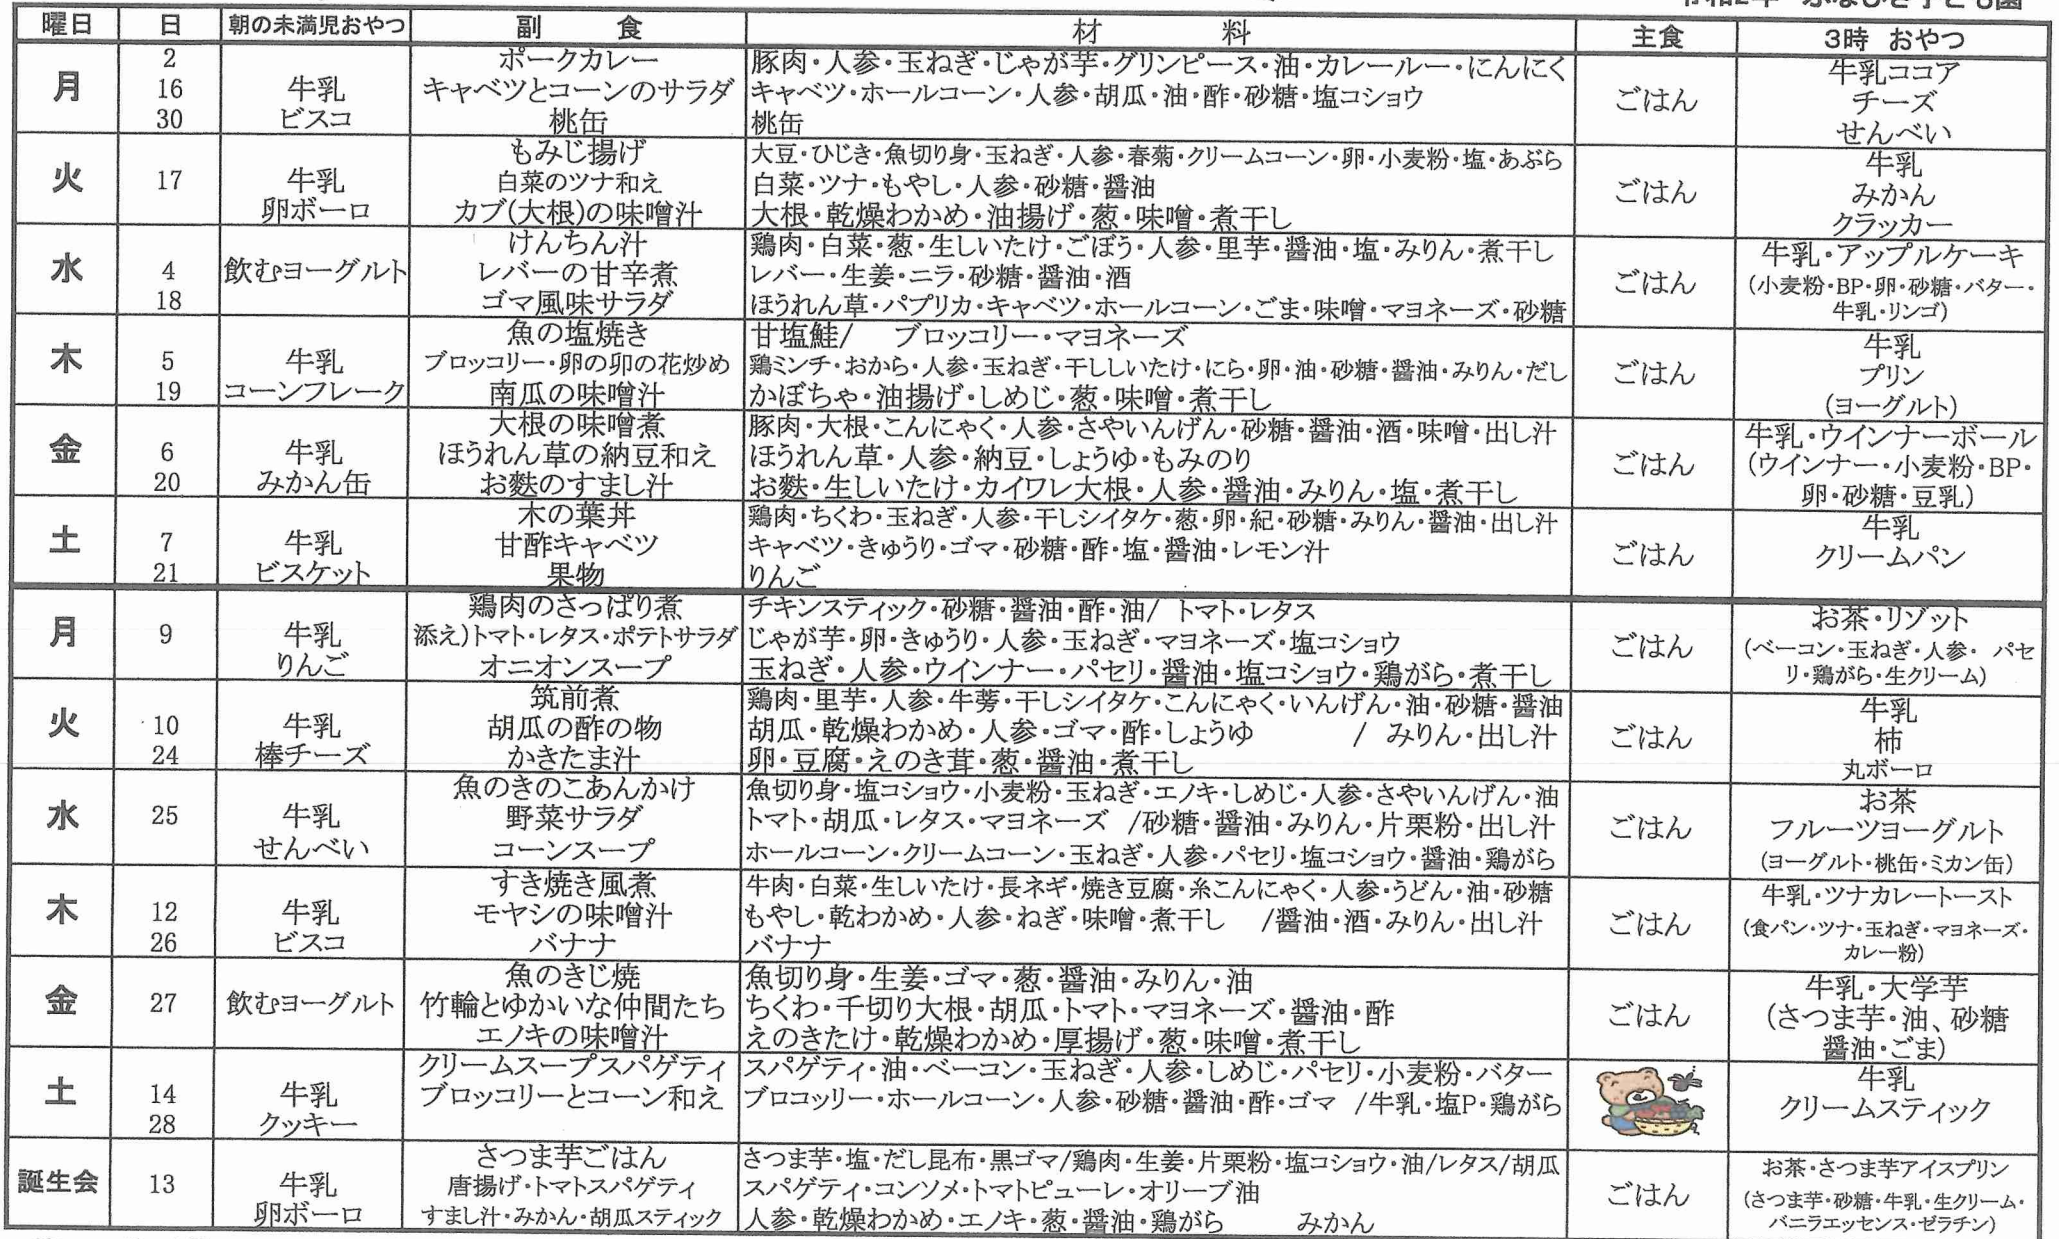 曜日 日 朝の未満児おやつ 副 食 材 料 主食 3時 おやつ
月 2 16 30
牛乳
ビスコ
ポークカレー
キャベツとコーンのサラダ
桃缶
豚肉・人参・玉ねぎ・じゃが芋・グリンピース・油・カレールー・にんにく
キャベツ・ホールコーン・人参・胡瓜・油・酢・砂糖・塩コショウ
桃缶
ごはん
牛乳ココア
チーズ
せんべい
火 17
牛乳
卵ボーロ
もみじ揚げ
白菜のツナ和え
カブ(大根)の味噌汁
大豆・ひじき・魚切り身・玉ねぎ・人参・春菊・クリームコーン・卵・小麦粉・塩・あぶら
白菜・ツナ・もやし・人参・砂糖・醤油
大根・乾燥わかめ・油揚げ・葱・味噌・煮干し
ごはん
牛乳
みかん
クラッカー
水 4 18
飲むヨーグルト
けんちん汁
レバーの甘辛煮
ゴマ風味サラダ
鶏肉・白菜・葱・生しいたけ・ごぼう・人参・里芋・醤油・塩・みりん・煮干し
レバー・生姜・ニラ・砂糖・醤油・酒
ほうれん草・パプリカ・キャベツ・ホールコーン・ごま・味噌・マヨネーズ・砂糖
ごはん
牛乳・アップルケーキ
(小麦粉・BP・卵・砂糖・バター・
牛乳・リンゴ)
木 5 19
牛乳
コーンフレーク
魚の塩焼き
ブロッコリー・卵の卯の花炒め
南瓜の味噌汁
甘塩鮭/ ブロッコリー・マヨネーズ
鶏ミンチ・おから・人参・玉ねぎ・干ししいたけ・にら・卵・油・砂糖・醤油・みりん・だし
かぼちゃ・油揚げ・しめじ・葱・味噌・煮干し
ごはん
牛乳
プリン
(ヨーグルト)
金 6 20
牛乳
みかん缶
大根の味噌煮
ほうれん草の納豆和え
お麩のすまし汁
豚肉・大根・こんにゃく・人参・さやいんげん・砂糖・醤油・酒・味噌・出し汁
ほうれん草・人参・納豆・しょうゆ・もみのり
お麩・生しいたけ・カイワレ大根・人参・醤油・みりん・塩・煮干し
ごはん
牛乳・ウインナーボール
(ウインナー・小麦粉・BP・
卵・砂糖・豆乳)
土 7 21
牛乳
ビスケット
木の葉丼
甘酢キャベツ
果物
鶏肉・ちくわ・玉ねぎ・人参・干しシイタケ・葱・卵・紀・砂糖・みりん・醤油・出し汁
キャベツ・きゅうり・ゴマ・砂糖・酢・塩・醤油・レモン汁
りんご
ごはん
牛乳
クリームパン
月 9
牛乳
りんご
鶏肉のさっぱり煮
添え)トマト・レタス・ポテトサラダ
オニオンスープ
チキンスティック・砂糖・醤油・酢・油/ トマト・レタス
じゃが芋・卵・きゅうり・人参・玉ねぎ・マヨネーズ・塩コショウ
玉ねぎ・人参・ウインナー・パセリ・醤油・塩コショウ・鶏がら・煮干し
ごはん
お茶・リゾット
(ベーコン・玉ねぎ・人参・ パセ
リ・鶏がら・生クリーム)
火 10 24
牛乳
棒チーズ
筑前煮
胡瓜の酢の物
かきたま汁
鶏肉・里芋・人参・牛蒡・干しシイタケ・こんにゃく・いんげん・油・砂糖・醤油
胡瓜・乾燥わかめ・人参・ゴマ・酢・しょうゆ / みりん・出し汁
卵・豆腐・えのき茸・葱・醤油・煮干し
ごはん
牛乳
柿
丸ボーロ
水 25
牛乳
せんべい
魚のきのこあんかけ
野菜サラダ
コーンスープ
魚切り身・塩コショウ・小麦粉・玉ねぎ・エノキ・しめじ・人参・さやいんげん・油
トマト・胡瓜・レタス・マヨネーズ /砂糖・醤油・みりん・片栗粉・出し汁
ホールコーン・クリームコーン・玉ねぎ・人参・パセリ・塩コショウ・醤油・鶏がら
ごはん
お茶
フルーツヨーグルト
(ヨーグルト・桃缶・ミカン缶)
木 12 26
牛乳
ビスコ
すき焼き風煮
モヤシの味噌汁
バナナ
牛肉・白菜・生しいたけ・長ネギ・焼き豆腐・糸こんにゃく・人参・うどん・油・砂糖
もやし・乾わかめ・人参・ねぎ・味噌・煮干し /醤油・酒・みりん・出し汁
バナナ
ごはん
牛乳・ツナカレートースト
(食パン・ツナ・玉ねぎ・マヨネーズ・
カレー粉)
金 27
飲むヨーグルト
魚のきじ焼
竹輪とゆかいな仲間たち
エノキの味噌汁
魚切り身・生姜・ゴマ・葱・醤油・みりん・油
ちくわ・千切り大根・胡瓜・トマト・マヨネーズ・醤油・酢
えのきたけ・乾燥わかめ・厚揚げ・葱・味噌・煮干し
ごはん
牛乳・大学芋
(さつま芋・油、砂糖
醤油・ごま)
土 14 28
牛乳
クッキー
クリームスープスパゲティ
ブロッコリーとコーン和え
スパゲティ・油・ベーコン・玉ねぎ・人参・しめじ・パセリ・小麦粉・バター
ブロコッリー・ホールコーン・人参・砂糖・醤油・酢・ゴマ /牛乳・塩P・鶏がら
牛乳
クリームスティック
誕生会 13
牛乳
卵ボーロ
さつま芋ごはん
唐揚げ・トマトスパゲティ
すまし汁・みかん・胡瓜スティック
さつま芋・塩・だし昆布・黒ゴマ/鶏肉・生姜・片栗粉・塩コショウ・油/レタス/胡瓜
スパゲティ・コンソメ・トマトピューレ・オリーブ油
人参・乾燥わかめ・エノキ・葱・醤油・鶏がら みかん
ごはん
お茶・さつま芋アイスプリン
(さつま芋・砂糖・牛乳・生クリーム・
バニラエッセンス・ゼラチン)